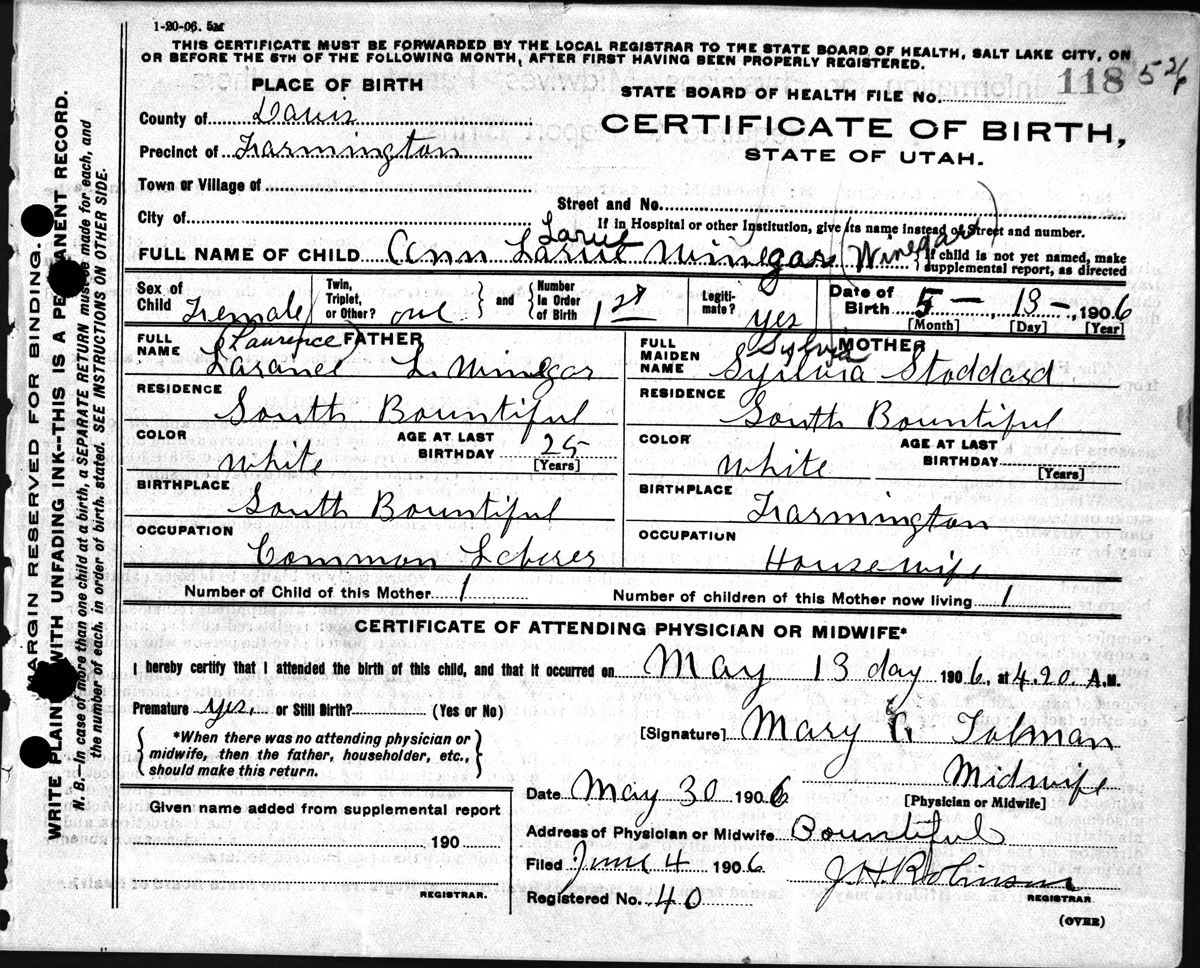 1-20-06. 5M
THIS CERTIFICATE MUST BE FORWARDED BY THE LOCAL REGISTRAR TO THE STATE BOARD OF HEALTH, SALT LAKE CITY, ON
OR BEFORE THE 5TH OF THE FOLLOWING MONTH, AFTER FIRST HAVING BEEN PROPERLY REGISTERED.
118 526
PLACE OF BIRTH
STATE BOARD OF HEALTH FILE No.
County of Davis
CERTIFICATE OF BIRTH,
Precinct of Farmington
STATE OF UTAH.
Town or Village of
Street and No.
City of
If in Hospital or other Institution, give its name instead of Street and number.
Larue
FULL NAME OF CHILD Ann Larue Winegar (Winegar) { If child is not yet named, make
supplemental report, as directed
Sex of Child Female
Twin, Triplet, or Other? one } and { Number in Order of Birth 1st
Legiti- mate? yes
Date of Birth 5 — , 13 — , 1906
[Month] [Day] [Year]
FATHER
FULL NAME Laurence
Laranel L. Winegar
RESIDENCE
South Bountiful
COLOR White
AGE AT LAST BIRTHDAY 25
[Years]
BIRTHPLACE
South Bountiful
OCCUPATION
Common Leberer
MOTHER
FULL MAIDEN NAME Sylvia
Syilvia Stoddard
RESIDENCE
South Bountiful
COLOR White
AGE AT LAST BIRTHDAY
[Years]
BIRTHPLACE
Farmington
OCCUPATION
Housewife
Number of Child of this Mother 1 Number of children of this Mother now living 1
CERTIFICATE OF ATTENDING PHYSICIAN OR MIDWIFE*
I hereby certify that I attended the birth of this child, and that it occurred on May 13 day 1906, at 4.20 A.M.
Premature yes, or Still Birth? (Yes or No)
[Signature] Mary G Tolman
*When there was no attending physician or
midwife, then the father, householder, etc.,
should make this return.
Midwife
Date May 30 1906 [Physician or Midwife]
Given name added from supplemental report
190
REGISTRAR.
Address of Physician or Midwife Bountiful
Filed June 4 1906 J.H. Robinson
Registered No. 40 REGISTRAR.
(OVER)
MARGIN RESERVED FOR BINDING.
WRITE PLAINLY WITH UNFADING INK--THIS IS A PERMANENT RECORD.
N. B.—In case of more than one child at a birth, a SEPARATE RETURN must be made for each, and
the number of each, in order of birth, stated. SEE INSTRUCTIONS ON OTHER SIDE.